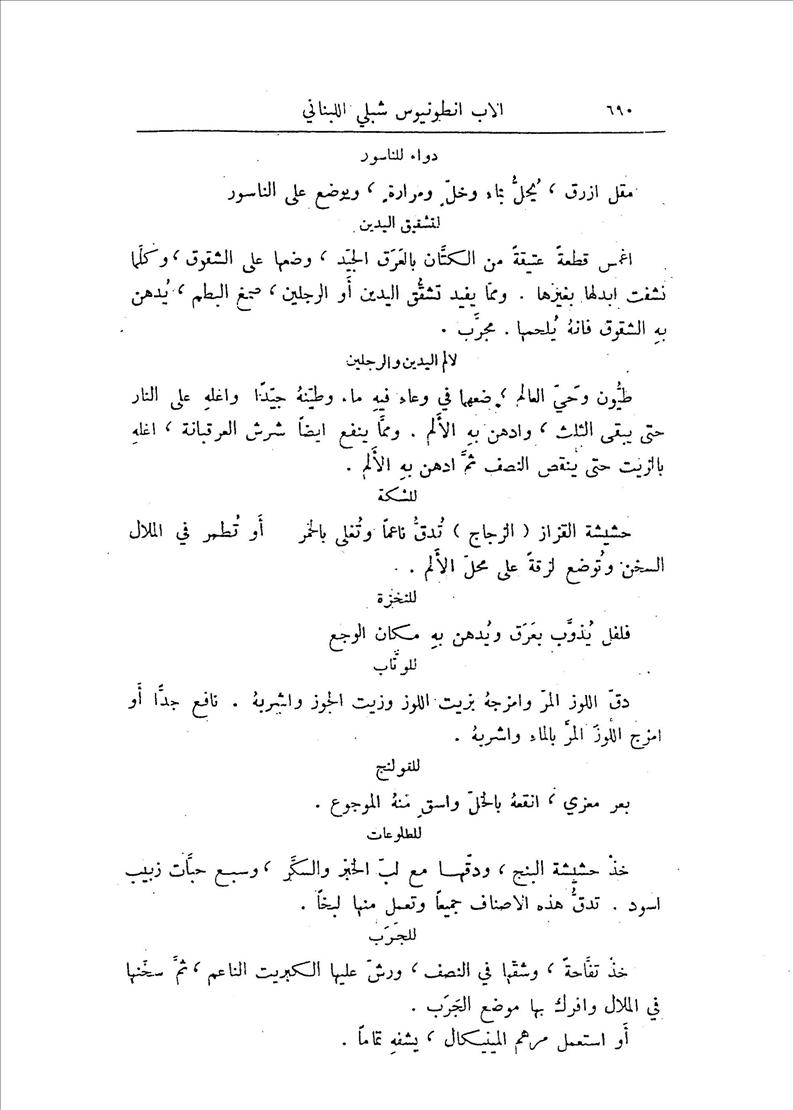 ٦٩٠ الاب انطونيوس شبلي اللبناني
دواء للناسور
مقل ازرق ، يُحلُّ بماء وخلّ ومرارة ، ويوضع على الناسور
لتشقيق اليدين
اغمس قطعةً عتيقةً من الكتَّان بالعَرَق الجيّد ، وضعها على الشقوق ، وكلَّما
نشفت ابدلها بغيرها . وممّا يفيد تشقُّق اليدين أَو الرجلين ، صمغ البطم ، يُدهن
بهِ الشقوق فانهُ يُلحمها . مجرَّب .
لالم اليدين والرجلين
طيُّون وحَيّ العالم ، ضعهما في وعاء فيهِ ماء. وطيّنهُ جيّدًا واغلهِ على النار
حتى يبقى الثلث ، وادهن بهِ الأَلم . وممَّا ينفع ايضاً شرش العرقبانة ، اغلهِ
بالزيت حتى ينقص النصف ثمَّ ادهن بهِ الأَلم .
للشكة
حشيشة القزاز ( الزجاج ) تُدقُّ ناعماً وتُغلى بالخمر أَو تُطمر في الملال
السخن وتُوضع لزقةً على محلّ الأَلم .
للنخزة
فلفل يُذوَّب بعَرَق ويُدهن بهِ مكان الوجع
للوتَّاب
دقّ اللوز المرّ وامزجهُ بزيت اللوز وزيت الجوز واشربهُ . نافع جدًّا أَو
امزج اللوزَ المرَّ بالماء واشربهُ .
للقولنج
بعر معزي ، انقعهُ بالخلّ واسقِ مِنهُ الموجوع .
للطلوعات
خذْ حشيشة البنج ، ودقّهـا مع لبّ الخبز والسكَّر ، وسبع حبَّات زبيب
اسود . تدقُّ هذه الاصناف جميعاً وتعمل منها لبخاً .
للجَرَب
خذْ تفَّاحةً ، وشقّها في النصف ، ورشّ عليها الكبريت الناعم ، ثمَّ سخّنها
في الملال وافرك بها موضع الجَرَب .
أَو استعمل مرهم المينيكال ، يشفهِ تماماً .